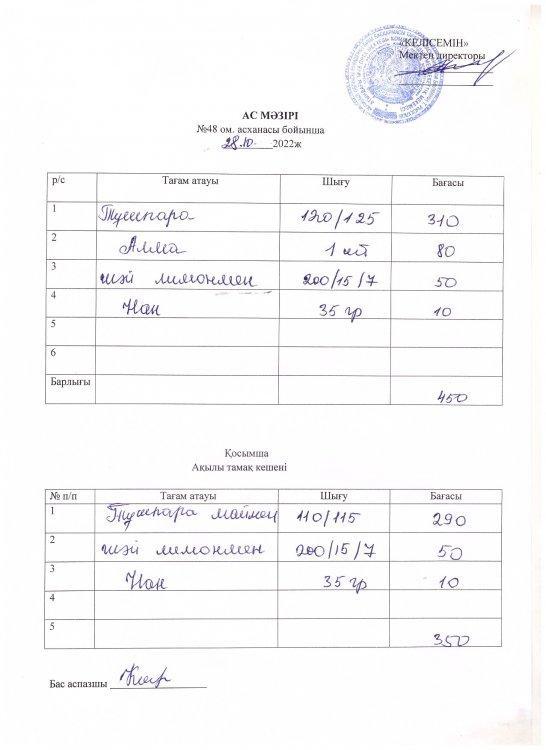 «КЕЛІСЕМІН»
Мектеп директоры
АС МӘЗІРІ
№48 ом. асханасы бойынша
28.10. 2022ж
р/с Тағам атауы Шығу Бағасы
1 Тушпара 120/125 310
2 Алма 1 шт 80
3 шәй лимонмен 200/15/7 50
4 Нан 35 гр 10
5
6
Барлығы 450
Қосымша
Ақылы тамақ кешені
№ п/п Тағам атауы Шығу Бағасы
1 Тушпара маймен 110/115 290
2 шәй лимонмен 200/15/7 50
3 Нан 35 гр 10
4
5 350
Бас аспазшы